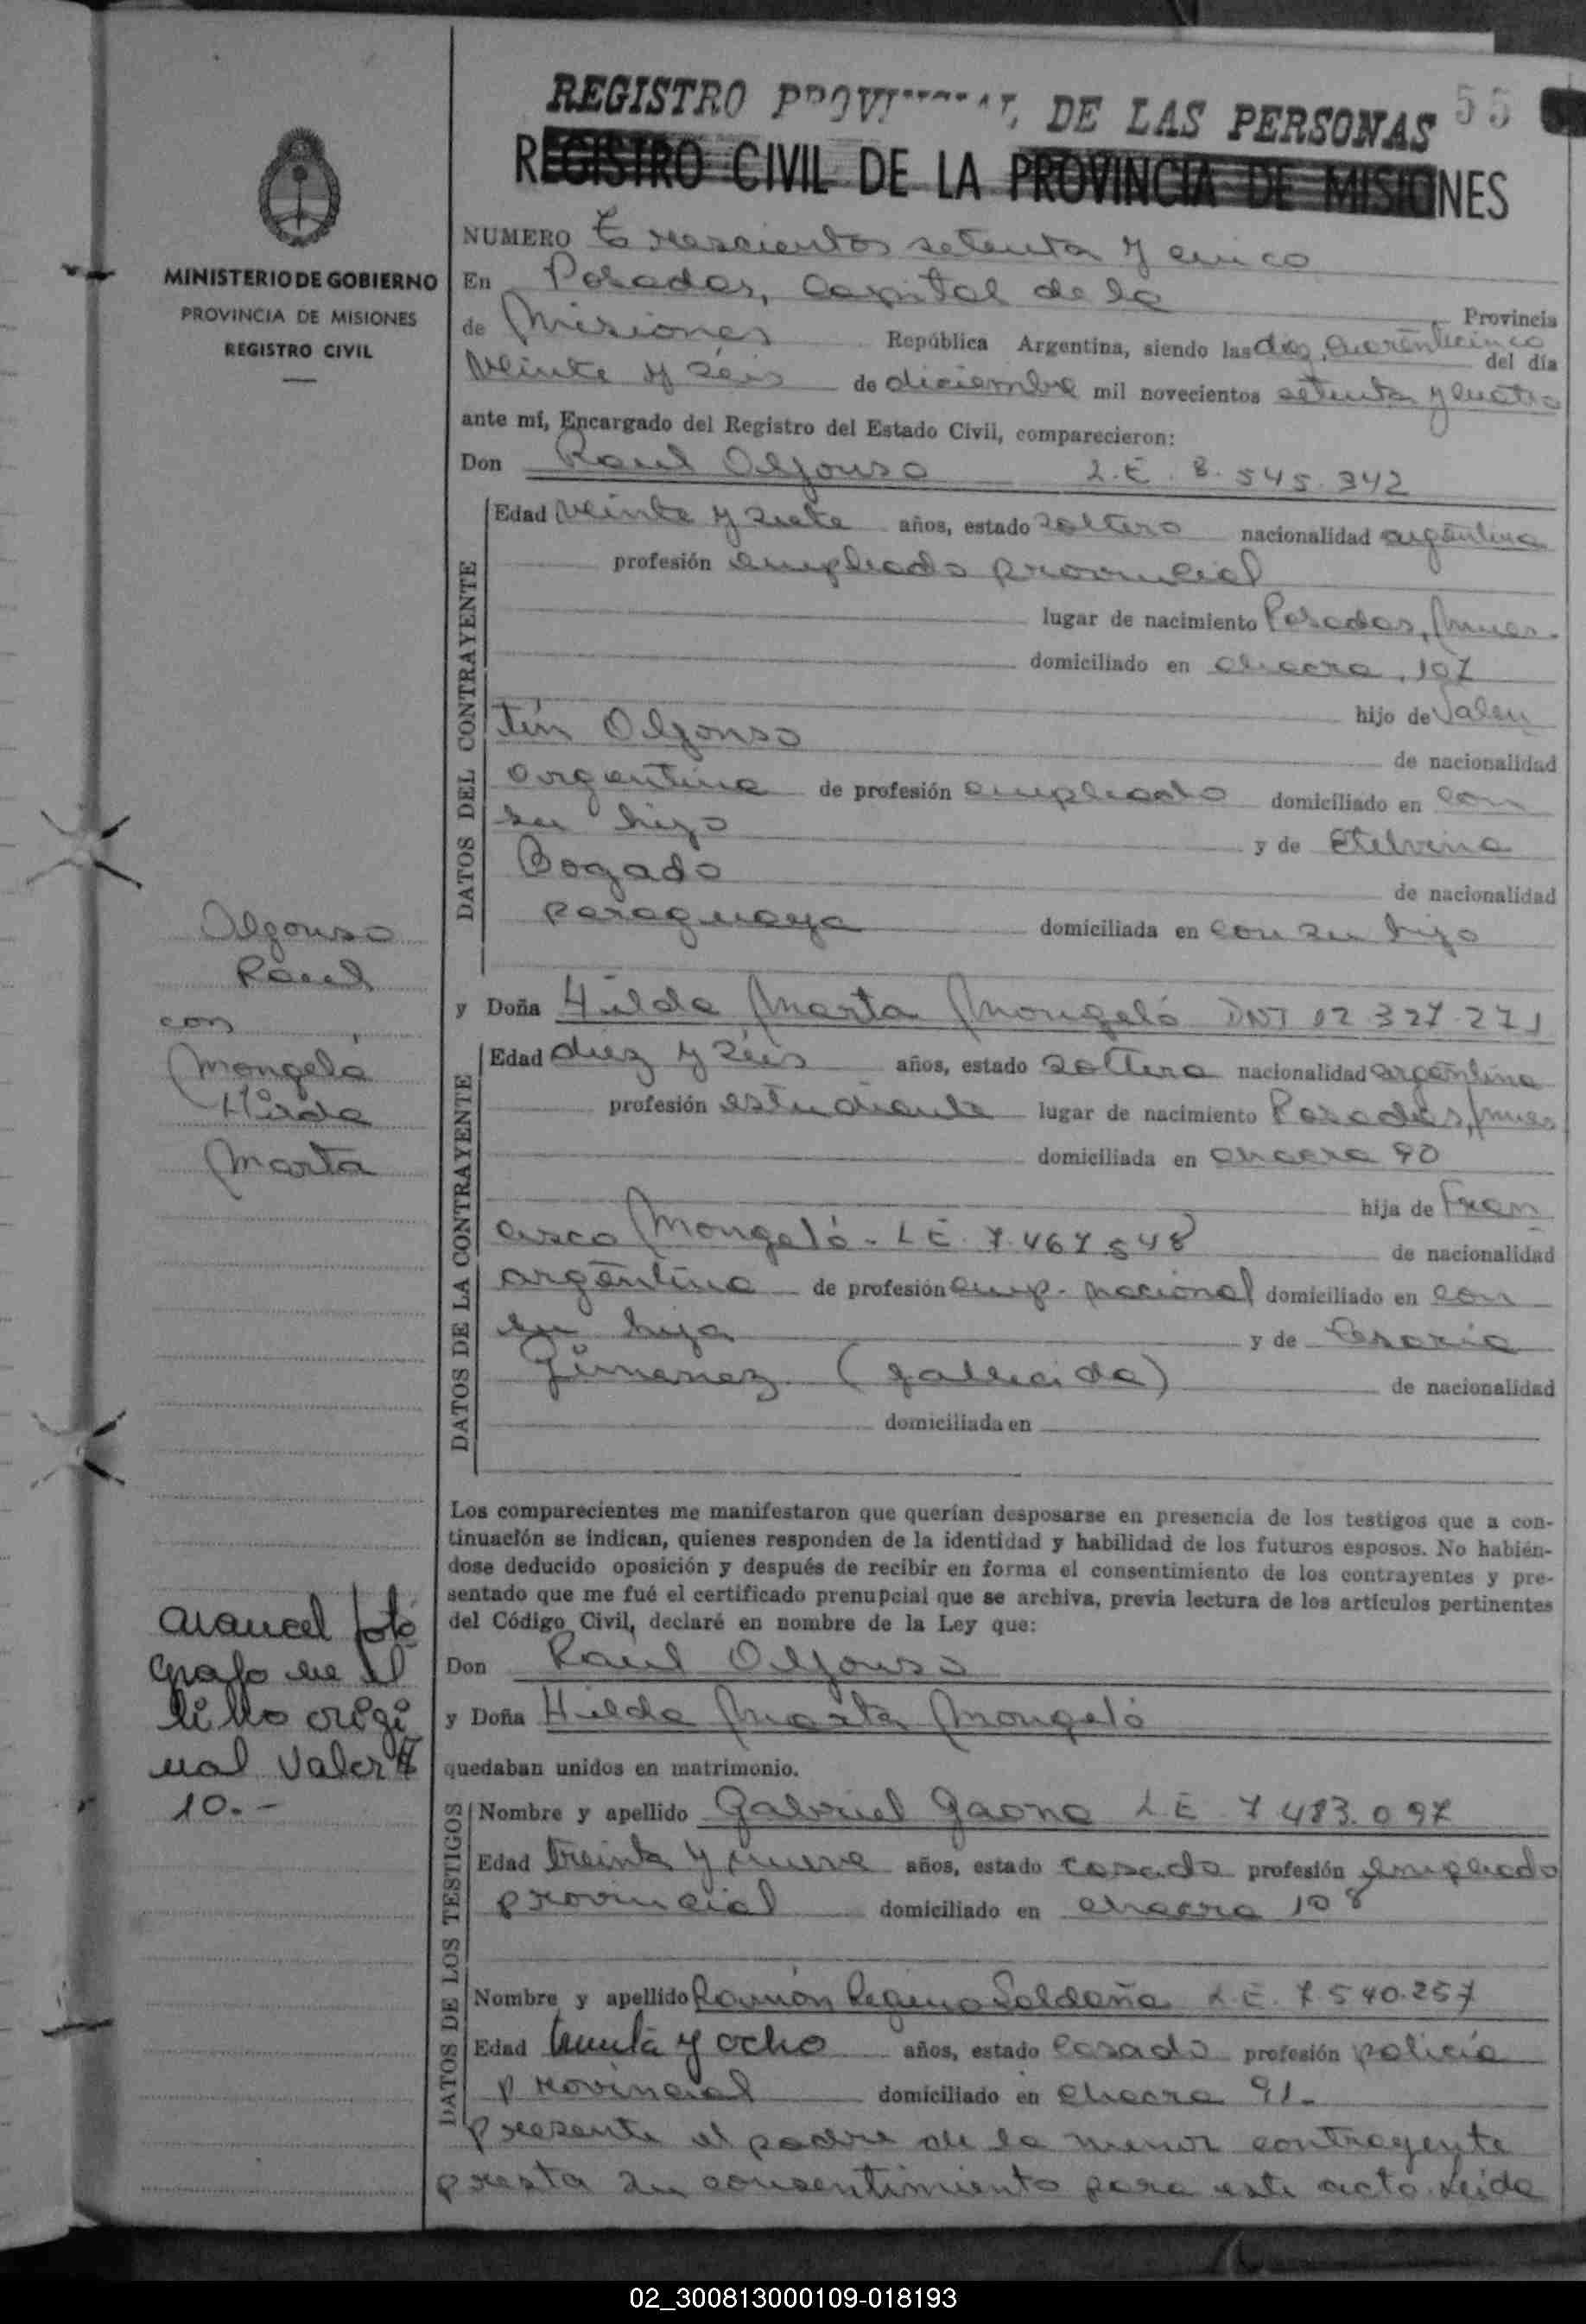 REGISTRO PROVINCIAL DE LAS PERSONAS 55
REGISTRO CIVIL DE LA PROVINCIA DE MISIONES
MINISTERIO DE GOBIERNO
PROVINCIA DE MISIONES
REGISTRO CIVIL
NUMERO Trescientos setenta y cinco
En Posadas, Capital de la Provincia
de Misiones República Argentina, siendo las diez, cuarenticinco del día
veinte y séis de diciembre mil novecientos setenta y cuatro
ante mí, Encargado del Registro del Estado Civil, comparecieron:
Don Raul Alfonso L.E. 8.545.342
DATOS DEL CONTRAYENTE
Edad veinte y siete años, estado soltero nacionalidad argentina
profesión empleado provincial
lugar de nacimiento Posadas, Mnes.
domiciliado en chacra 107
hijo de Valen
tín Alfonso
de nacionalidad
argentina de profesión empleado domiciliado en con
su hijo y de Etelvina
Bogado
de nacionalidad
paraguaya domiciliada en con su hijo
Alfonso
Raul
con
Mongeló
Hilda
Marta
y Doña Hilda Marta Mongeló DNI 12.327.271
DATOS DE LA CONTRAYENTE
Edad diez y séis años, estado soltera nacionalidad argentina
profesión estudiante lugar de nacimiento Posadas, Mnes
domiciliada en chacra 90
hija de Fran
cisco Mongeló - L E. 7.467.548
de nacionalidad
argentina de profesión emp. nacional domiciliado en con
su hija y de Cesaria
Gimenez (fallecida)
de nacionalidad
domiciliada en
Los comparecientes me manifestaron que querían desposarse en presencia de los testigos que a con-
tinuación se indican, quienes responden de la identidad y habilidad de los futuros esposos. No habién-
dose deducido oposición y después de recibir en forma el consentimiento de los contrayentes y pre-
sentado que me fué el certificado prenupcial que se archiva, previa lectura de los artículos pertinentes
del Código Civil, declaré en nombre de la Ley que:
Don Raúl Alfonso
y Doña Hilda Marta Mongeló
quedaban unidos en matrimonio.
arancel fotó
grafo en el
libro origi
nal Valor $
10.-
DATOS DE LOS TESTIGOS
Nombre y apellido Gabriel Gaona L E 7 483.097
Edad treinta y nueve años, estado casado profesión empleado
provincial domiciliado en chacra 108
Nombre y apellido Ramón Regino Saldaña L.E. 7 540.257
Edad treinta y ocho años, estado casado profesión policía
provincial domiciliado en chacra 91.
presente el padre de la menor contrayente
presta su consentimiento para este acto. Leida
02_300813000109-018193